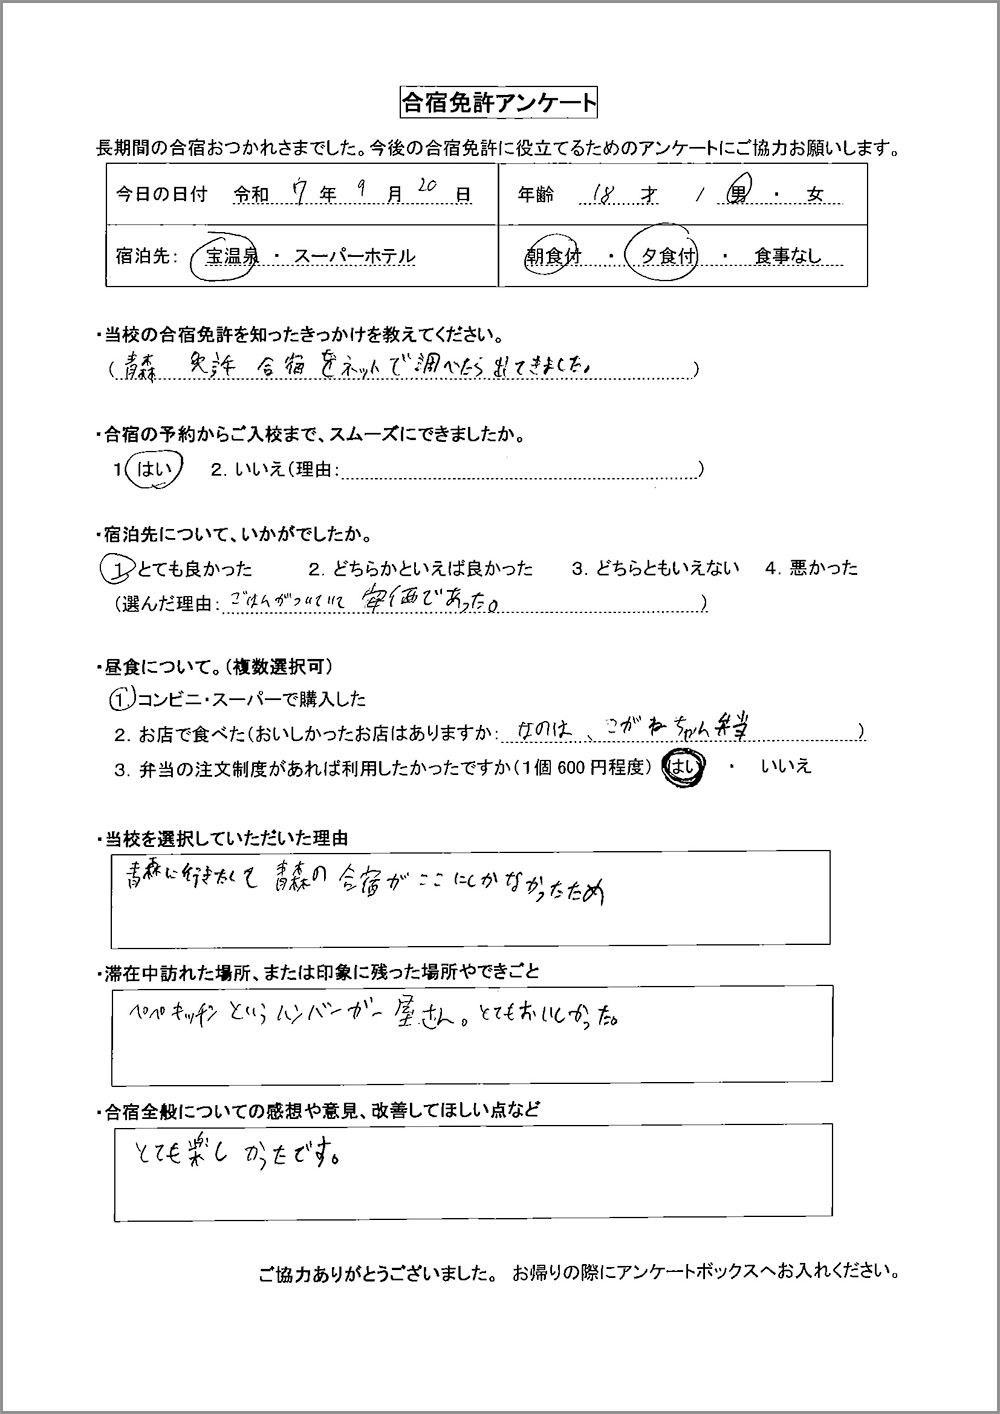 合宿免許アンケート
長期間の合宿おつかれさまでした。今後の合宿免許に役立てるためのアンケートにご協力お願いします。
今日の日付 令和 7 年 9 月 20 日 年齢 18 才 / 男 ・ 女
宿泊先: 宝温泉 ・ スーパーホテル 朝食付 ・ 夕食付 ・ 食事なし
・当校の合宿免許を知ったきっかけを教えてください。
(青森 免許 合宿をネットで調べたら出てきました。)
・合宿の予約からご入校まで、スムーズにできましたか。
1 はい 2. いいえ(理由: )
・宿泊先について、いかがでしたか。
1 とても良かった 2. どちらかといえば良かった 3. どちらともいえない 4. 悪かった
(選んだ理由: ごはんがついていて 安価であった。)
・昼食について。(複数選択可)
1. コンビニ・スーパーで購入した
2. お店で食べた(おいしかったお店はありますか: なのは、こがねちゃん弁当 )
3. 弁当の注文制度があれば利用したかったですか(1個 600 円程度) はい ・ いいえ
・当校を選択していただいた理由
青森に行きたくて 青森の合宿がここにしかなかったため
・滞在中訪れた場所、または印象に残った場所やできごと
ペペキッチンというハンバーガー屋さん。とてもおいしかった。
・合宿全般についての感想や意見、改善してほしい点など
とても楽しかったです。
ご協力ありがとうございました。 お帰りの際にアンケートボックスへお入れください。